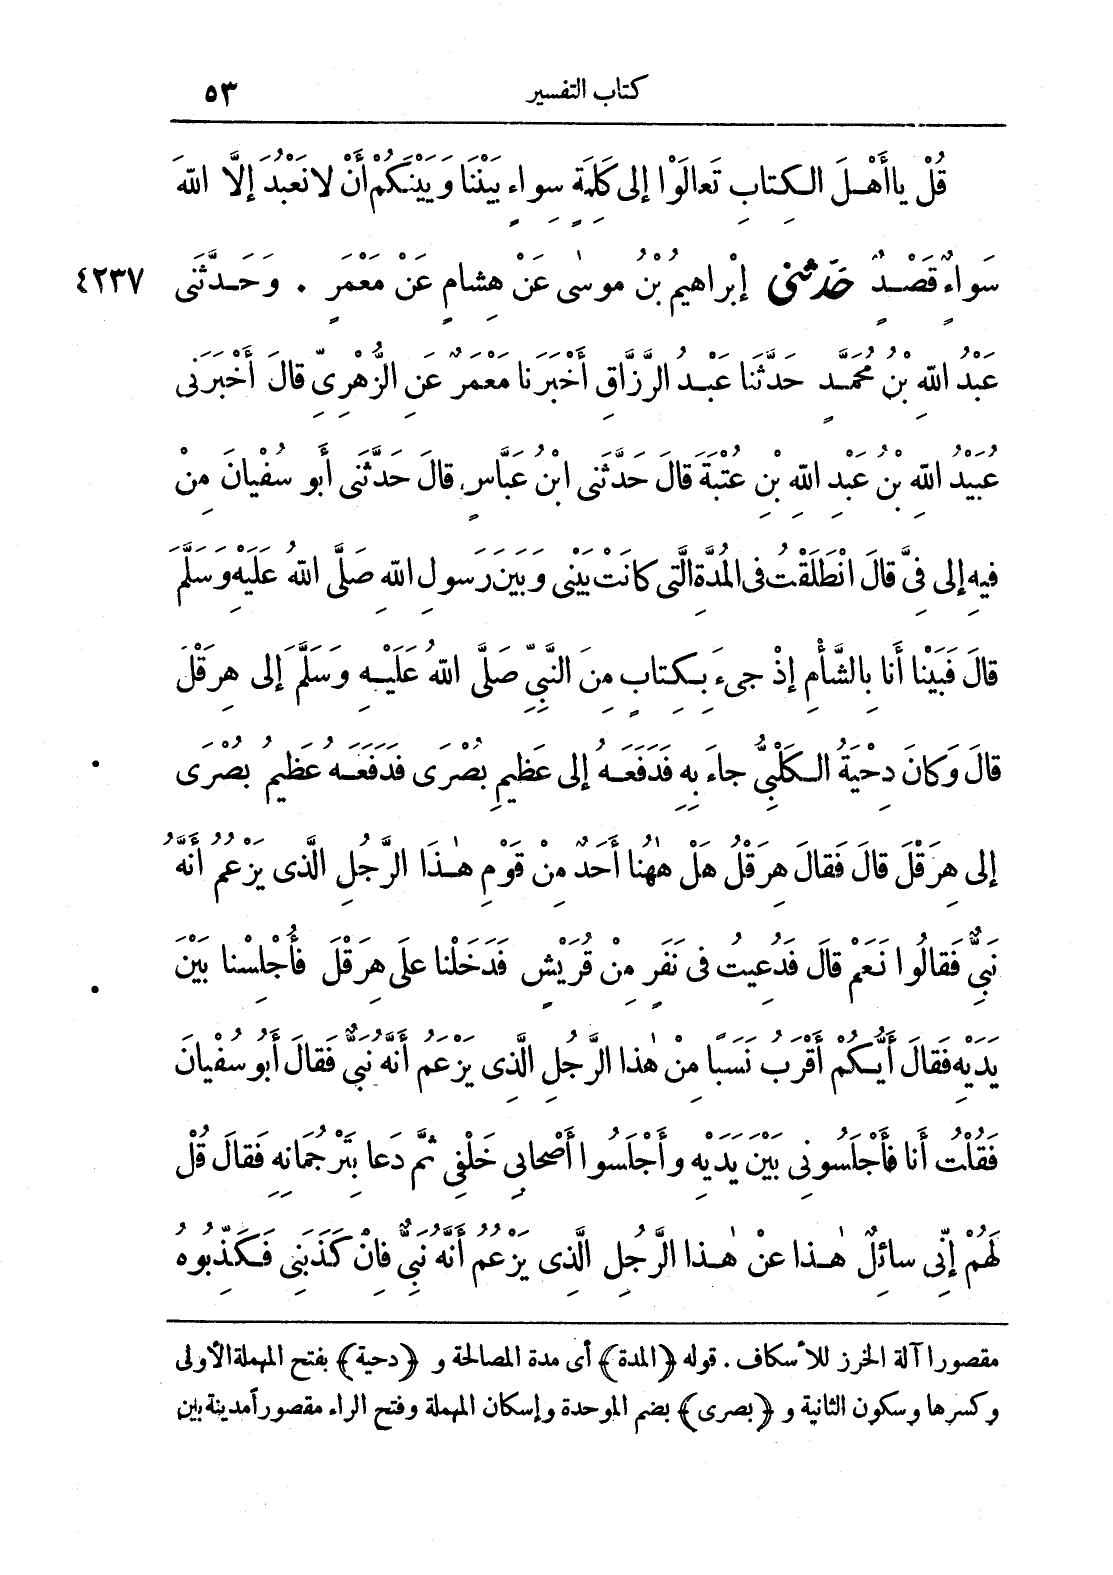 كتاب التفسير ٥٣
قُلْ يا أَهْلَ الكِتابِ تَعالَوْا إلى كَلِمَةٍ سِواءٍ بَيْنَنا وَبَيْنَكُمْ أَنْ لا نَعْبُدَ إلَّا اللهَ
سَواءٌ قَصْدٌ حَدَّثَنى إبْراهيمُ بْنُ موسى عَنْ هِشامٍ عَنْ مَعْمَرٍ . وَحَدَّثَنى ٤٢٣٧
عَبْدُ اللهِ بْنُ مُحَمَّدٍ حَدَّثَنا عَبْدُ الرَّزَّاقِ أَخْبَرَنا مَعْمَرٌ عَنِ الزُّهْرِىِّ قالَ أَخْبَرَنى
عُبَيْدُ اللهِ بْنُ عَبْدِ اللهِ بْنِ عُتْبَةَ قالَ حَدَّثَنى ابْنُ عَبَّاسٍ قالَ حَدَّثَنى أَبو سُفْيانَ مِنْ
فيهِ إلى فِىَّ قالَ انْطَلَقْتُ فى المُدَّةِ الَّتى كانَتْ بَيْنى وَبَيْنَ رَسولِ اللهِ صَلَّى اللهُ عَلَيْهِ وَسَلَّمَ
قالَ فَبَيْنا أَنا بِالشَّأْمِ إذْ جىءَ بِكِتابٍ مِنَ النَّبِيِّ صَلَّى اللهُ عَلَيْهِ وَسَلَّمَ إلى هِرَقْلَ
قالَ وَكانَ دِحْيَةُ الكَلْبِىُّ جاءَ بِهِ فَدَفَعَهُ إلى عَظيمِ بُصْرَى فَدَفَعَهُ عَظيمُ بُصْرَى
إلى هِرَقْلَ قالَ فَقالَ هِرَقْلُ هَلْ هٰهُنا أَحَدٌ مِنْ قَوْمِ هٰذَا الرَّجُلِ الَّذى يَزْعُمُ أَنَّهُ
نَبِىٌّ فَقالُوا نَعَمْ قالَ فَدُعيتُ فى نَفَرٍ مِنْ قُرَيْشٍ فَدَخَلْنا عَلى هِرَقْلَ فَأُجْلِسْنا بَيْنَ
يَدَيْهِ فَقالَ أَيُّكُمْ أَقْرَبُ نَسَبًا مِنْ هٰذا الرَّجُلِ الَّذِى يَزْعُمُ أَنَّهُ نَبِىٌّ فَقالَ أَبُو سُفْيانَ
فَقُلْتُ أَنا فَأَجْلَسُونى بَيْنَ يَدَيْهِ وَأَجْلَسُوا أَصْحابى خَلْفى ثُمَّ دَعا بِتَرْجُمَانِهِ فَقالَ قُلْ
لَهُمْ إنِّى سائِلٌ هٰذا عَنْ هٰذا الرَّجُلِ الَّذِى يَزْعُمُ أَنَّهُ نَبِىٌّ فَإنْ كَذَبَنِى فَكَذِّبُوهُ
مقصورا آلة الخرز للأسكاف . قوله ﴿المدة﴾ أى مدة المصالحة و ﴿دحية﴾ بفتح المهملة الأولى
وكسرها وسكون الثانية و ﴿بصرى﴾ بضم الموحدة وإسكان المهملة وفتح الراء مقصورا مدينة بين